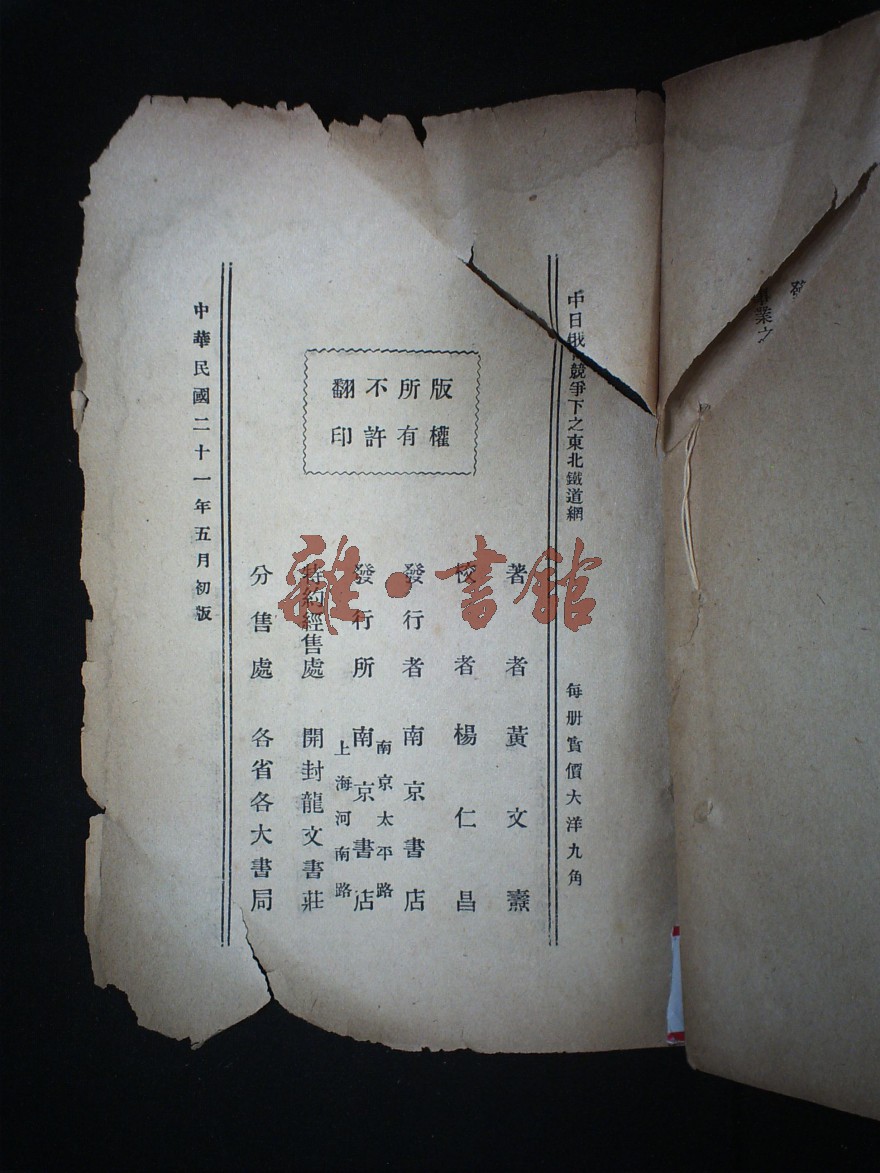 中日俄競爭下之東北鐵道網
每册實價大洋九角
版權
所有
不許
翻印
著者 黃文燾
校者 楊仁昌
發行者 南京書店
發行所 南京書店
南京太平路
上海河南路
特約經售處 開封龍文書莊
分售處 各省各大書局
中華民國二十一年五月初版
業之
雜·書館